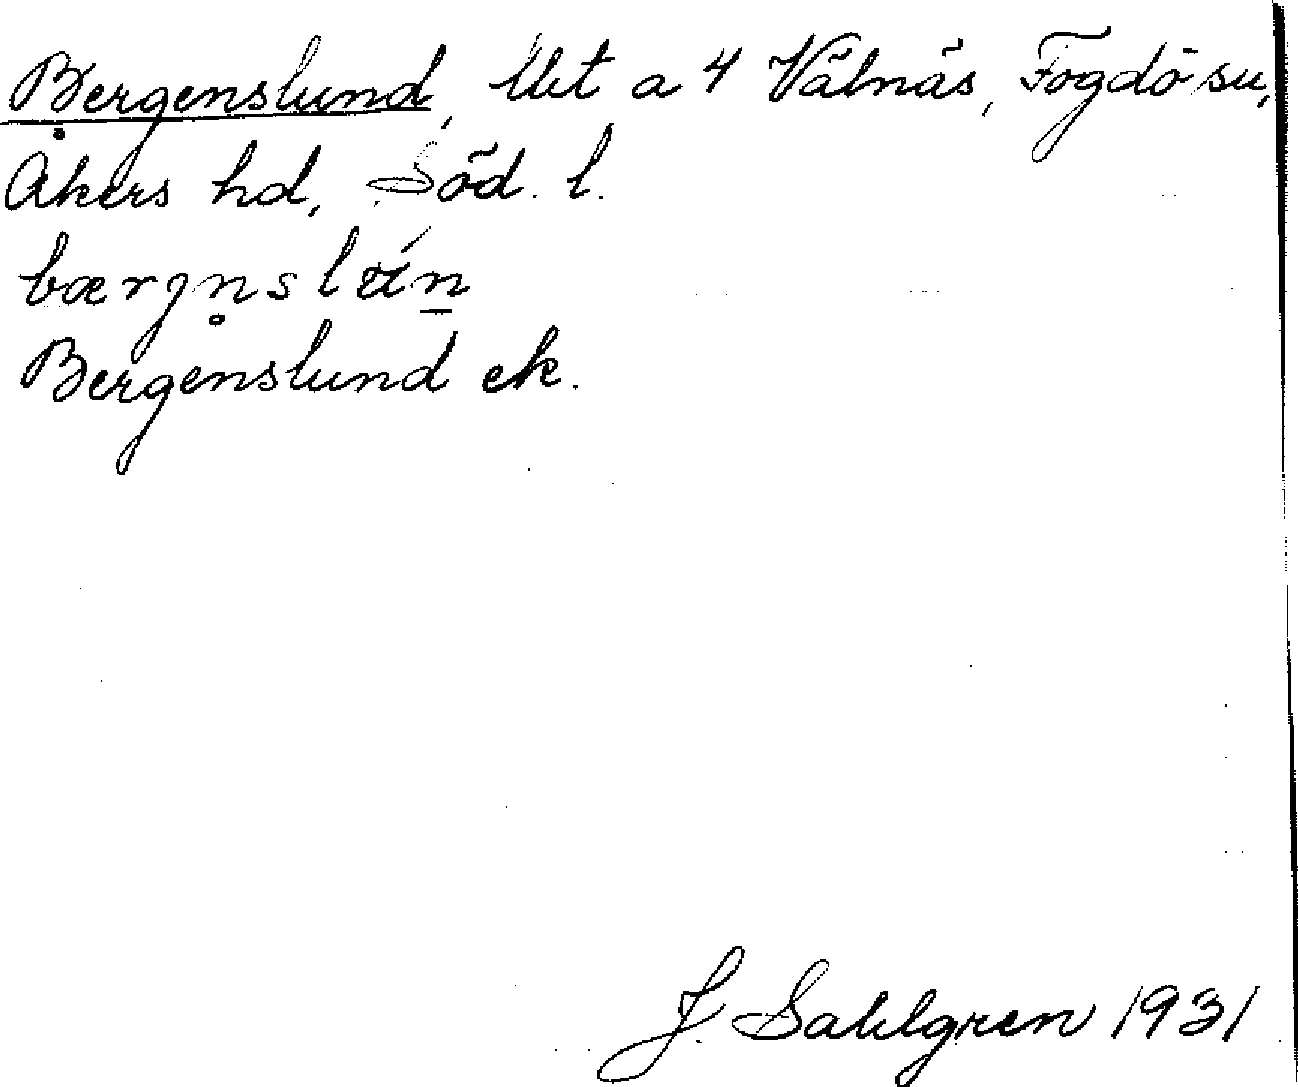 Bergenslund, Ut a 4 Välnäs, Fogdö sn,
Åkers hd, Söd. l.
bærjn̥slún̲
Bergenslund ek.
J. Sahlgren 1931